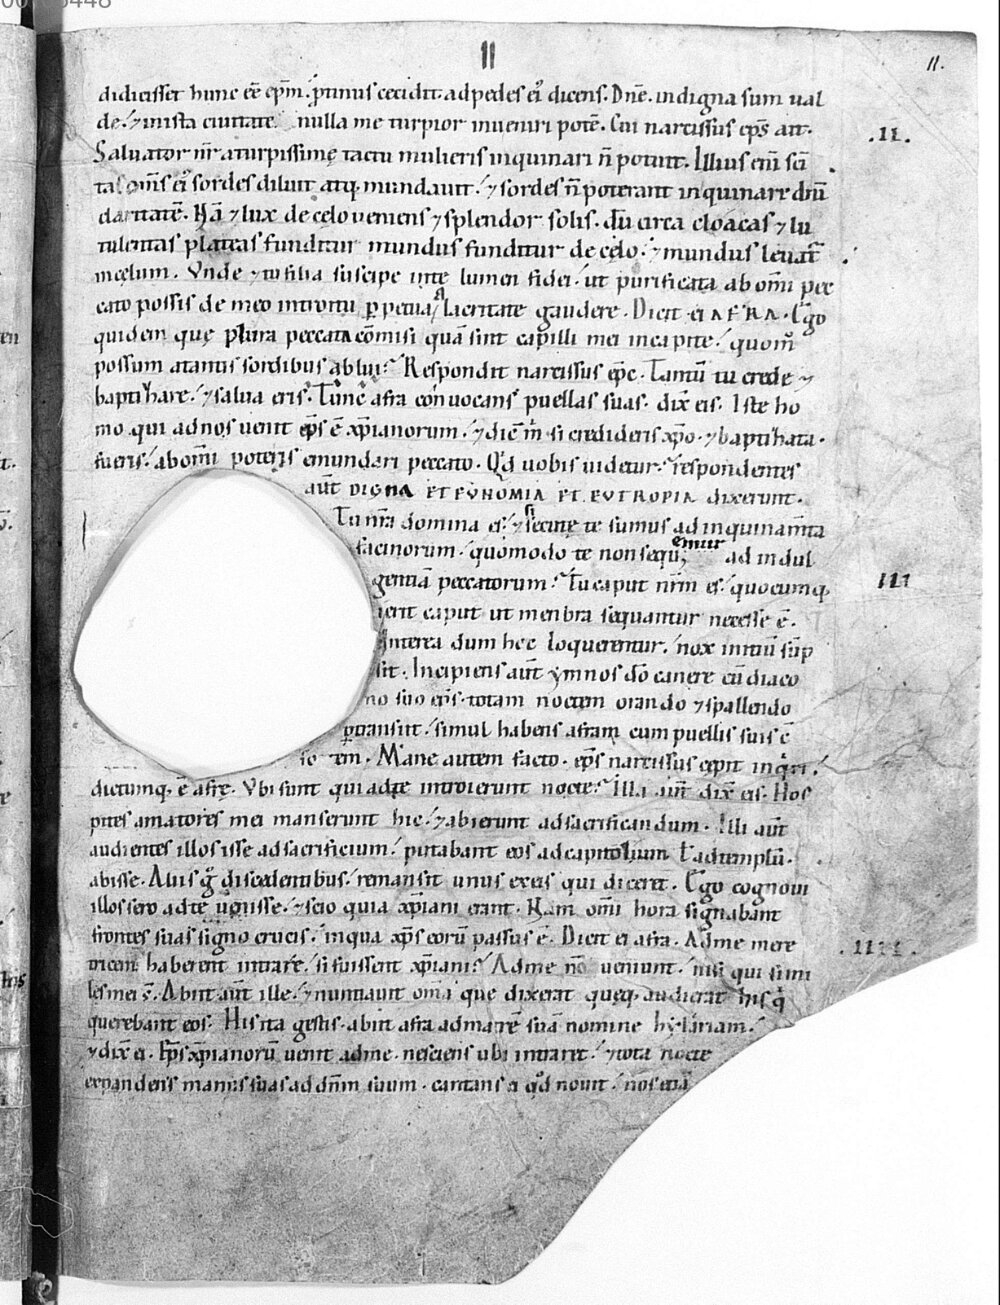 11
11.
didicisset hunc eē ep̄m. ptinus cecidit ad pedes ei᾽ dicens. Dn̄e. indigna sum ual
de. ⁊ in ista ciuitate nulla me turpior inueniri potē. Cui narcissus ep̄s ait.
.II.
Saluator nr̄ a turpissimę tactu mulieris inquinari n̄ potuit. Illius eni᷃
om̄s ei᾽ sordes diluit atq. mundauit. ⁊ sordes n̄ poterant inquinare
claritatē. Nā ⁊ lux de cęlo ueniens ⁊ splendor solis. dū circa cloacas ⁊ lu
tulentas plateas funditur mundus funditur de cęlo. ⁊ mundus leuat᷑
in cęlum. Vnde ⁊ tu filia suscipe in te lumen fidei. ut purificata ab om̄i pec
cato possis de meo introitu ꝑpetua lacritate gaudere. Dicit ei AFRA. Ego
quidem quę plura peccata cōmisi quā sint capilli mei in capite. quom̊
possum a tantis sordibus ablui. Respondit narcissus ep̄c. Tantū tu crede ⁊
baptizare. ⁊ salua eris. Tunc afra conuocans puellas suas. dix̄ eis. Iste ho
mo qui ad nos uenit ep̄s ē xp̄ianorum. ⁊ dic̄ m̄. si credideris xp̄o. ⁊ baptizata.
fueris. ab om̄i poteris emundari peccato. Qd uobis uidetur. respondentes
aūt DIGNA ET EVNOMIA ET EVTROPIA dixerunt.
Tu nr̄a domina es. ⁊ si secutę te sumus ad inquinam̄ta
facinorum. quomodo te non sequemur ad indul
gentiā peccatorum. Tu caput nr̄m es. quocumq.
ierit caput ut menbra sequantur necesse ē.
III
Interea dum hęc loquerentur. nox initiū sūp
sit. Incipiens aūt ymnos dō canere cū diaco
no suo ep̄s. totam noctem orando ⁊ spallendo
ꝑtransiit. simul habens afram cum puellis suis
Mane autem facto. ep̄s narcissus cepit inq̄ri.
dictumq. ē afrę. Vbi sunt qui ad te introierunt nocte. Illa aūt dix̄ eis. Hos
pites amatores mei manserunt hic. ⁊ abierunt ad sacrificandum. Illi aūt
audientes illos isse ad sacrificium. putabant eos ad capitolium ł ad templū.
abisse. Aliis g̊ discedentibus. remansit unus ex eis qui diceret. Ego cognoui
illos sero ad te uenisse. ⁊ scio quia xp̄iani erant. Nam om̄i hora signabant
frontes suas signo crucis. in qua xp̄s eorū passus ē. Dicit ei afra. Ad me mere
.IIII.
tricem haberent intrare. si fuissent xp̄iani. Ad me n̄ ueniunt. nisi qui simi
les mei s̄. Abiit aūt ille. ⁊ nuntiauit om̄a que dixerat quęq. audierat his q̄
querebant eos. His ita gestis. abiit afra ad matrē suā nomine hylariam.
⁊ dix̄ ei. Ep̄s xp̄ianorū uenit ad me. nesciens ubi intraret. ⁊ tota nocte
expandens manus suas ad dn̄m suum. cantans a qd nouit. nos etiā